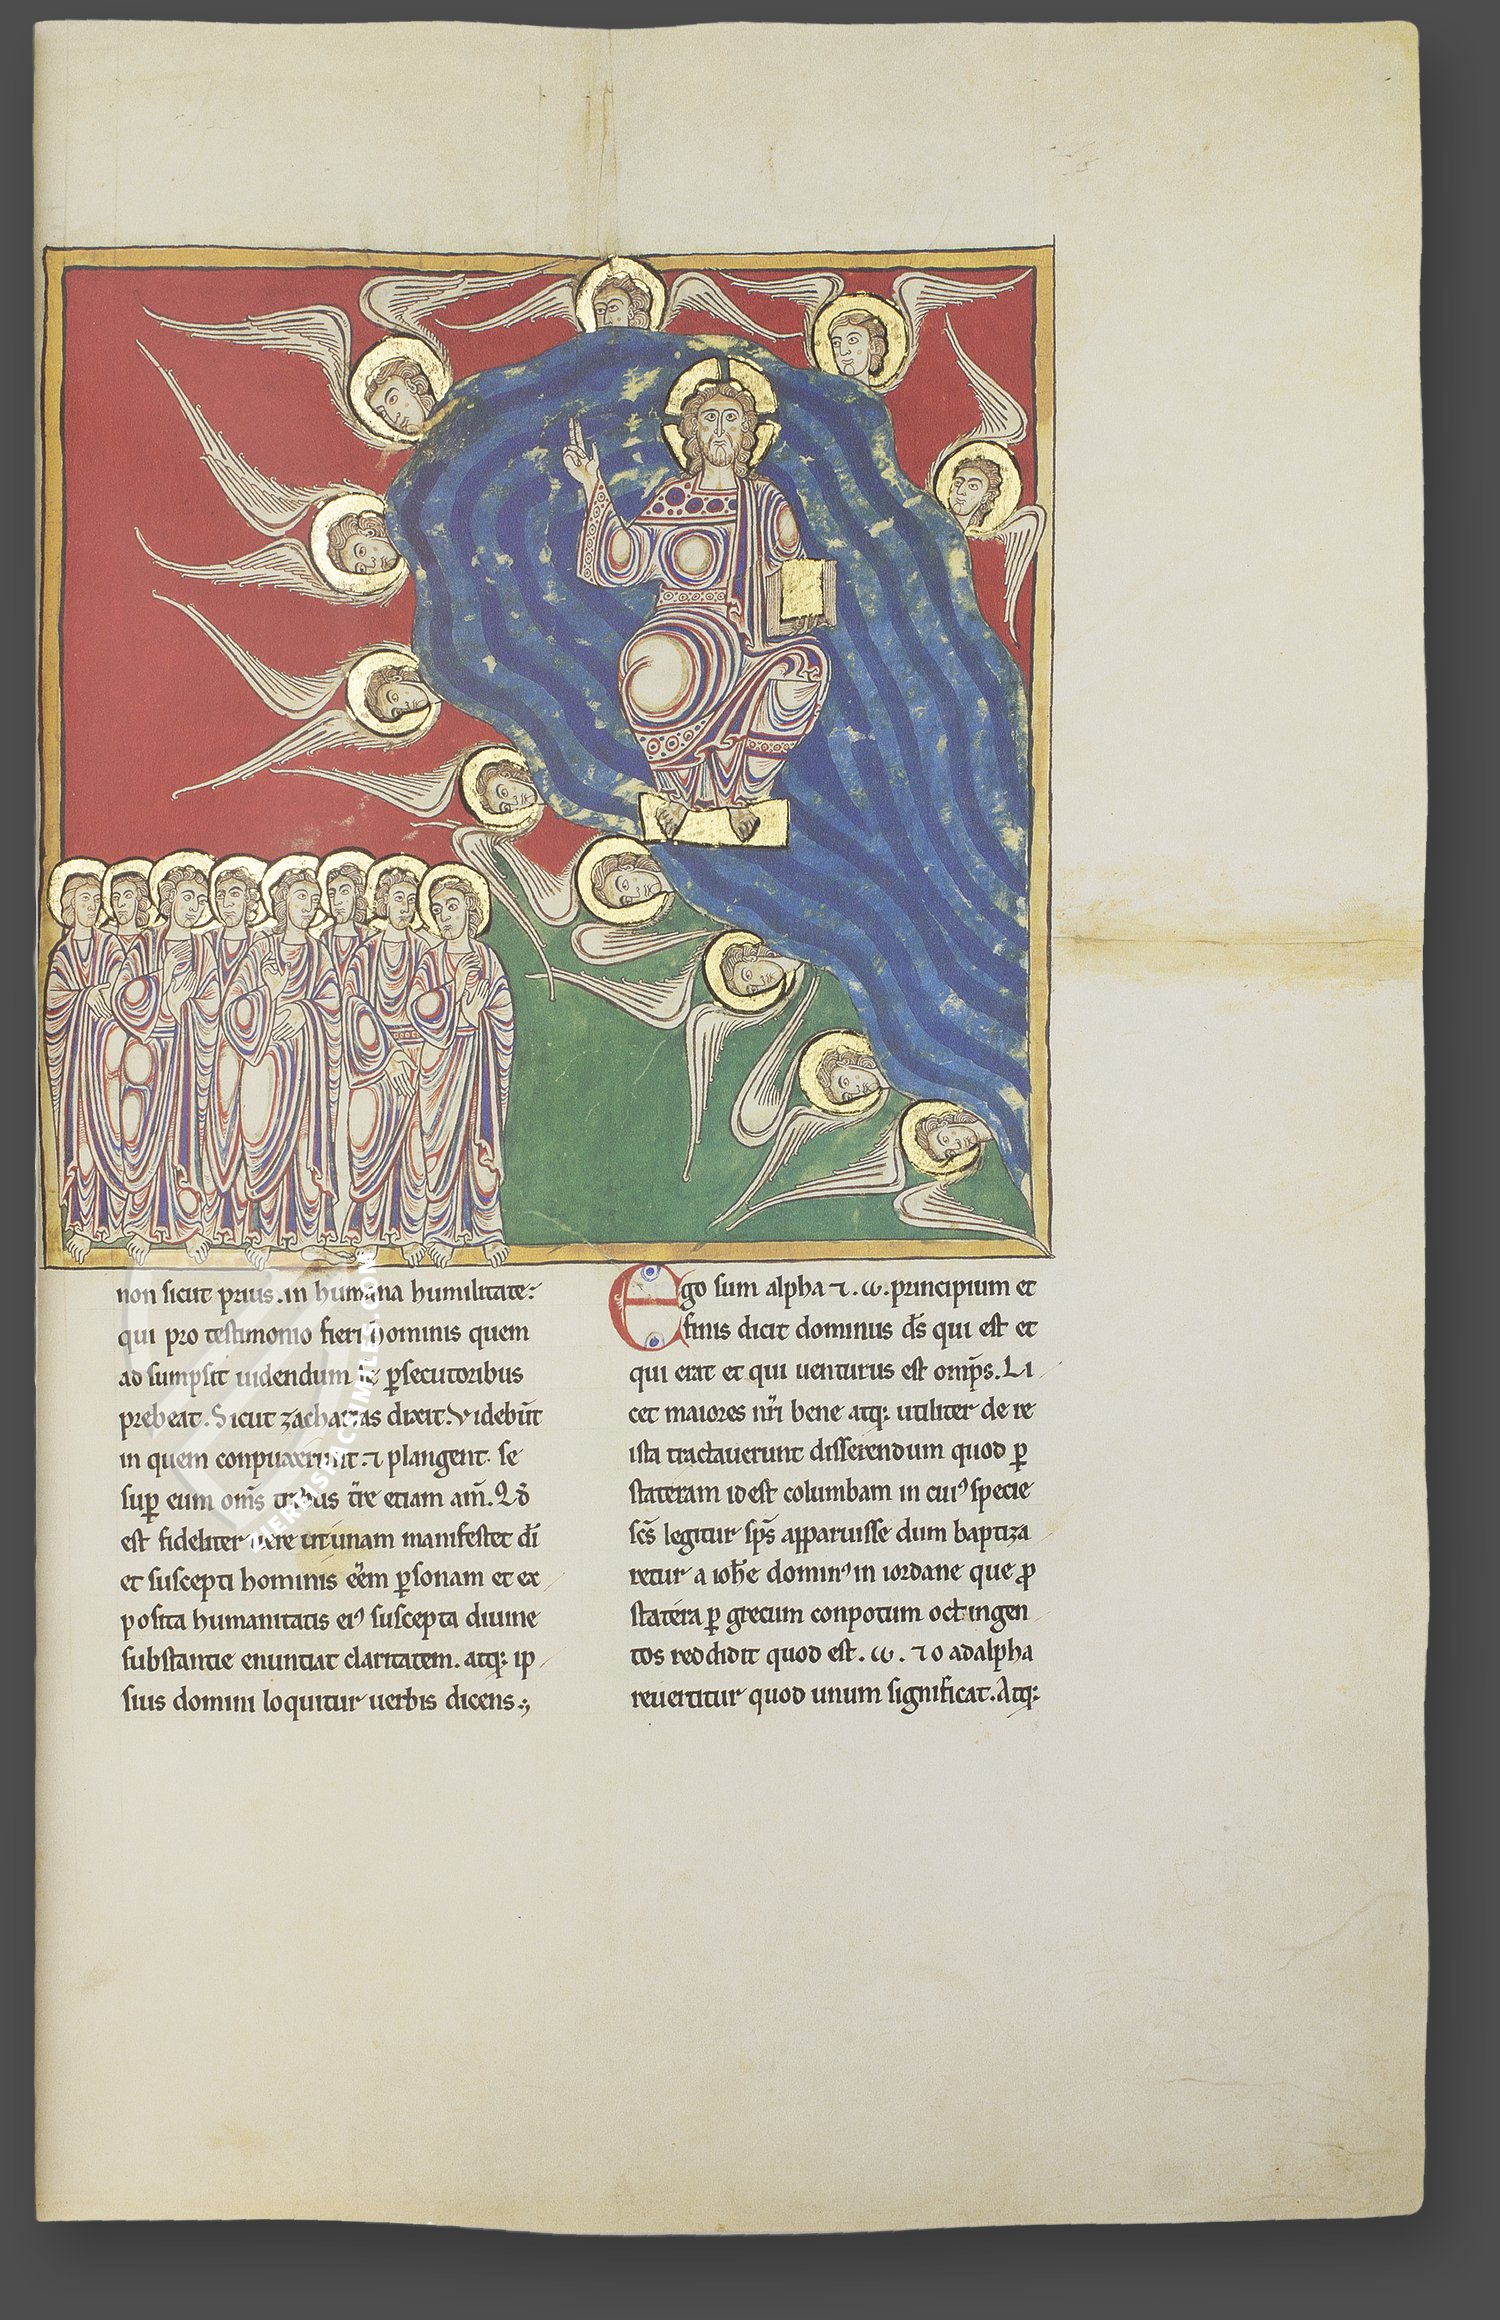 non sicut prius. in humana humilitate:
qui pro testimonio fieri hominis quem
ad sumpsit uidendum se p̱secutoribus
prebeat. Sicut zacharias dixit. Videbūt
in quem conpuxerunt. ⁊ plangent. se
suꝑ eum om̄s tribus t̄re etiam am̄. Qd̄
est fideliter uere ut unam manifestet dī
et suscepti hominis ēēm ꝑsonam et ex
posita humanitatis eiꝰ suscepta diuine
substantie enuntiat claritatem. atq: ip
sius domini loquitur uerbis dicens.,
Ego sum alpha ⁊ . ω . principium et
finis dicit dominus d̄s qui est et
qui erat et qui uenturus est omp̄s. Li
cet maiores nr̄i bene atq: utiliter de re
ista tractauerunt disserendum quod ꝑ
stateram id est columbam in cuiꝰ specie
sc̄s legitur sp̄s apparuisse dum baptiza
retur a ioħe dominꝰ in iordane que ꝓ
statera ꝑ grecum conpotum octingen
tos reddidit quod est . ω . ⁊ o ad alpha
reuertitur quod unum significat. Atq:
ZIEREISFACSIMILES.COM